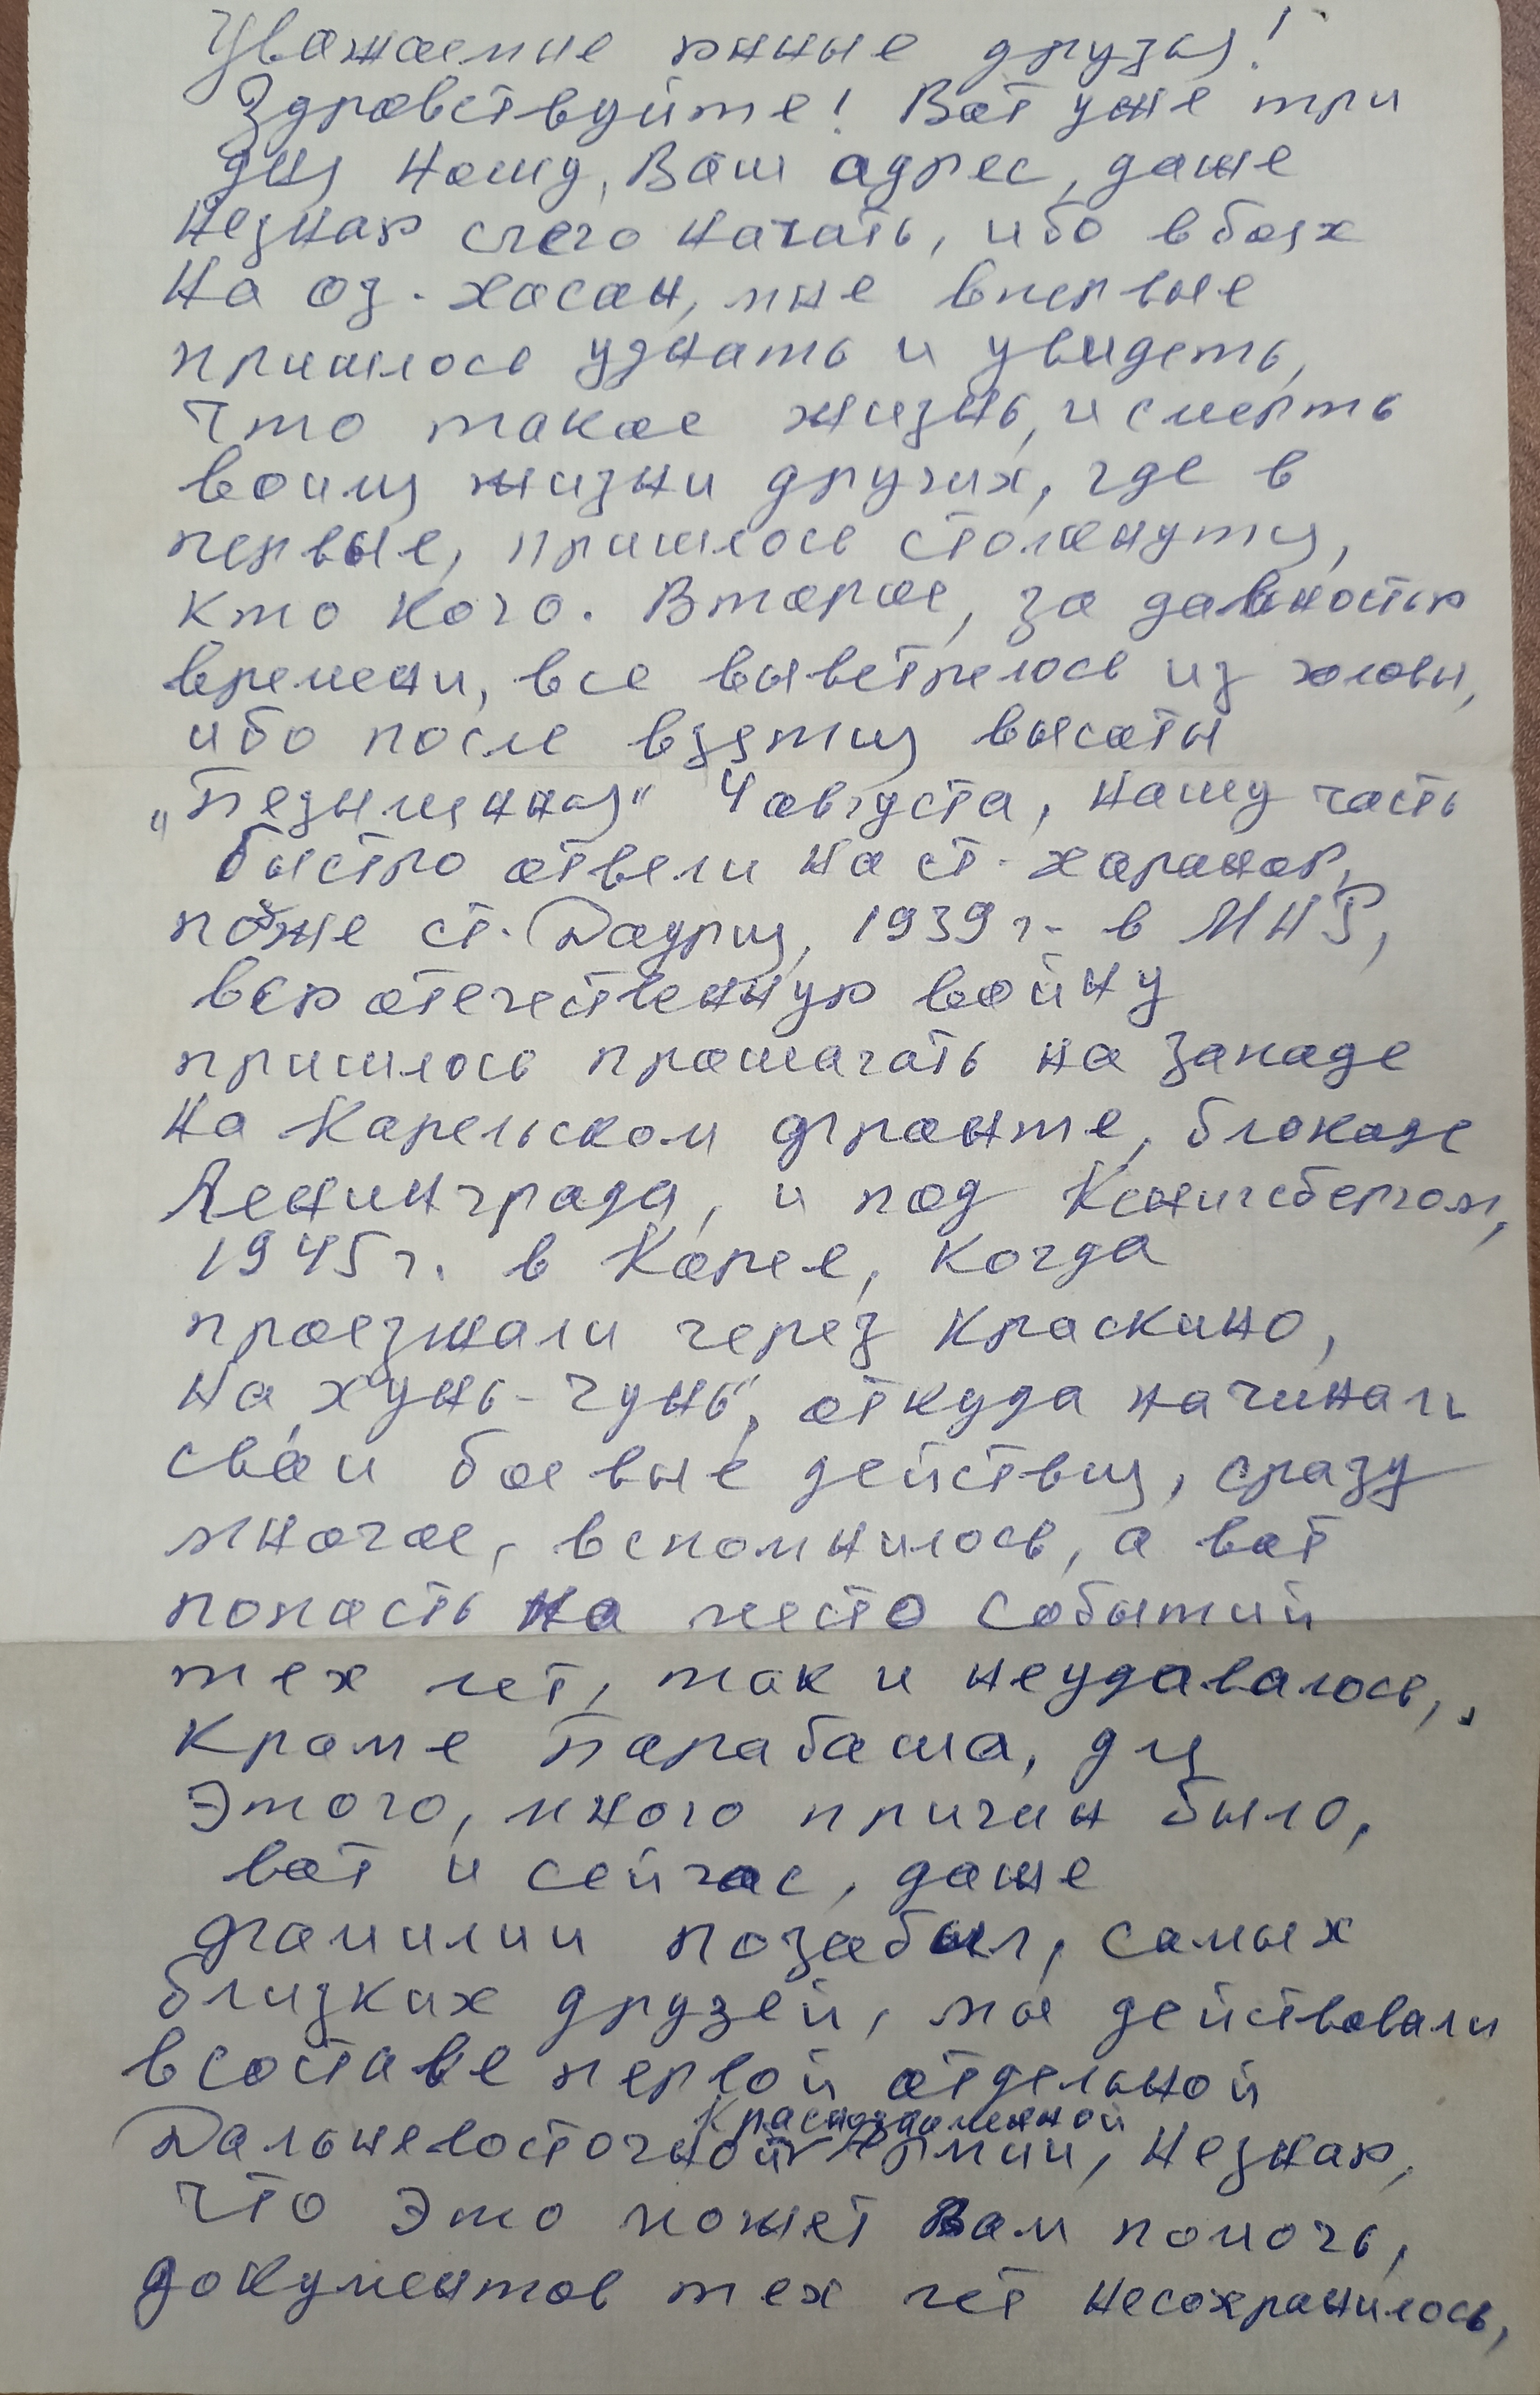 Уважаемые юные друзья!
Здравствуйте! Вот уже три
дня ношу, Ваш адрес, даже
незнаю счего начать, ибо вбоях
На оз. Хасан, мне впервые
пришлось узнать и увидеть,
что такое жизнь, и смерть
воимя жизни других, где в
первые, пришлось столкнутся,
кто кого. Второе, за давностью
времени, все выветрелось из головы,
ибо после взятия высоты
„Безымянная" 4 августа, нашу часть
быстро отвели на ст. Харанор,
позже ст. Даурия, 1939 г. в МНР,
всю отечественную войну
пришлось прошагать на западе
на Карельском фронте, блокаде
Ленинграда, и под Кенигсбергом,
1945 г. в Корее, когда
проезжали через Краскино,
на „Хунь-Чунь", откуда начинали
свои боевые действия, сразу
многое, вспомнилось, а вот
попасть на место событий
тех лет, так и неудавалось,
кроме Барабаша, для
этого, много причин было,
вот и сейчас, даже
фамилии позабыл, самых
близких друзей, мы действовали
всоставе первой отдельной
Краснознаменной
Дальневосточной Армии, незнаю,
что это может Вам помочь,
документов тех лет несохранилось,